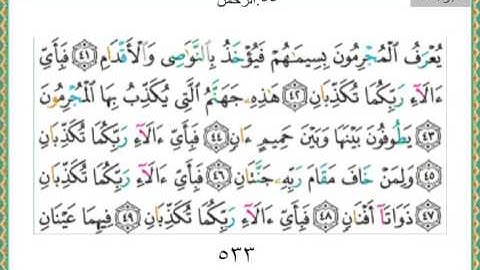 ٥٥.الرحمن
يُعْرَفُ ٱلْمُجْرِمُونَ بِسِيمَـٰهُمْ فَيُؤْخَذُ بِٱلنَّوَٰصِى وَٱلْأَقْدَامِ ﴿٤١﴾ فَبِأَىِّ
ءَالَآءِ رَبِّكُمَا تُكَذِّبَانِ ﴿٤٢﴾ هَـٰذِهِۦ جَهَنَّمُ ٱلَّتِى يُكَذِّبُ بِهَا ٱلْمُجْرِمُونَ
﴿٤٣﴾ يَطُوفُونَ بَيْنَهَا وَبَيْنَ حَمِيمٍ ءَانٍ ﴿٤٤﴾ فَبِأَىِّ ءَالَآءِ رَبِّكُمَا تُكَذِّبَانِ
﴿٤٥﴾ وَلِمَنْ خَافَ مَقَامَ رَبِّهِۦ جَنَّتَانِ ﴿٤٦﴾ فَبِأَىِّ ءَالَآءِ رَبِّكُمَا تُكَذِّبَانِ
﴿٤٧﴾ ذَوَاتَآ أَفْنَانٍ ﴿٤٨﴾ فَبِأَىِّ ءَالَآءِ رَبِّكُمَا تُكَذِّبَانِ ﴿٤٩﴾ فِيهِمَا عَيْنَانِ
٥٣٣